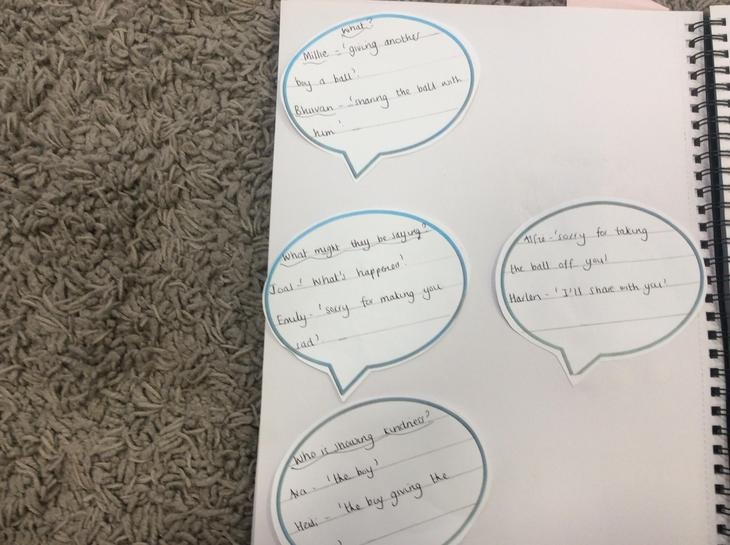 What?
Millie - 'giving another
boy a ball'.
Bhuvan - 'sharing the ball with
him'
What might they be saying?
Joal - 'What's happened'
Emily - 'sorry for making you
sad'
Alfie - 'sorry for taking
the ball off you'
Harlen - 'I'll share with you'
Who is showing kindness?
Ava - 'the boy'
Heidi - 'the boy giving the